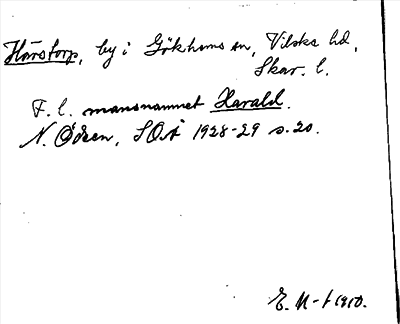 Härstorp, by i Gökhems sn, Vilske hd,
Skar. l.
F. l. mansnamnet Harald.
N. Ödeen, SOÅ 1928-29 s. 20.
E. M-t 1910.